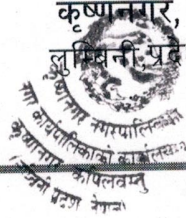 कृष्णनगर,
लुम्बिनी प्रदे
कृष्णनगर नगरपालिका
नगर कार्यपालिकाको कार्यालय
कृष्णनगर, कपिलवस्तु
लुम्बिनी प्रदेश नेपाल